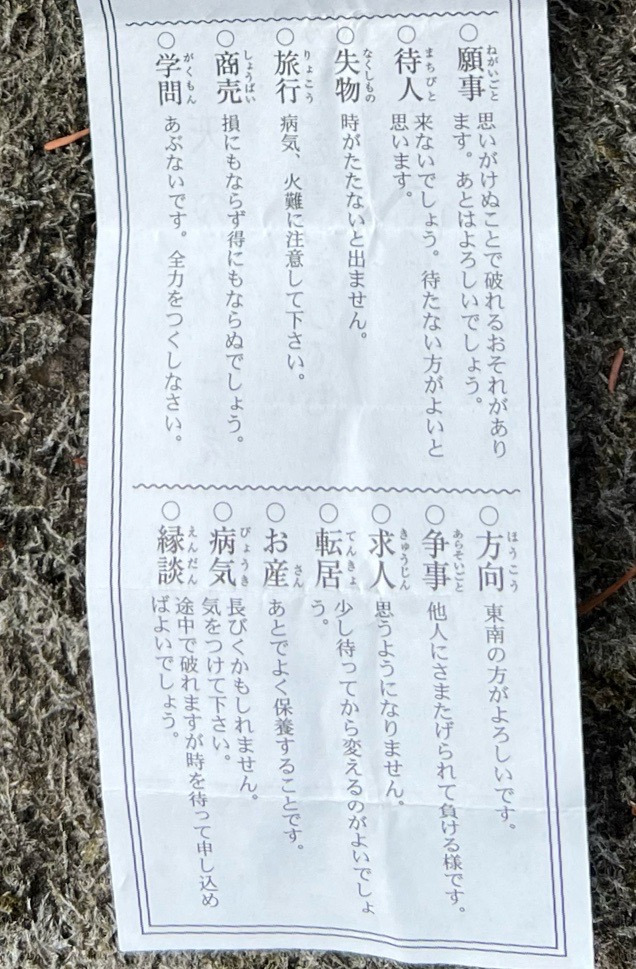 ○願事 思いがけぬことで破れるおそれがあり
ます。あとはよろしいでしょう。
○待人 来ないでしょう。待たない方がよいと
思います。
○失物 時がたたないと出ません。
○旅行 病気、火難に注意して下さい。
○商売 損にもならず得にもならぬでしょう。
○学問 あぶないです。全力をつくしなさい。
○方向 東南の方がよろしいです。
○争事 他人にさまたげられて負ける様です。
○求人 思うようになりません。
○転居 少し待ってから変えるのがよいでしょ
う。
○お産 あとでよく保養することです。
○病気 長びくかもしれません。
気をつけて下さい。
○縁談 途中で破れますが時を待って申し込め
ばよいでしょう。